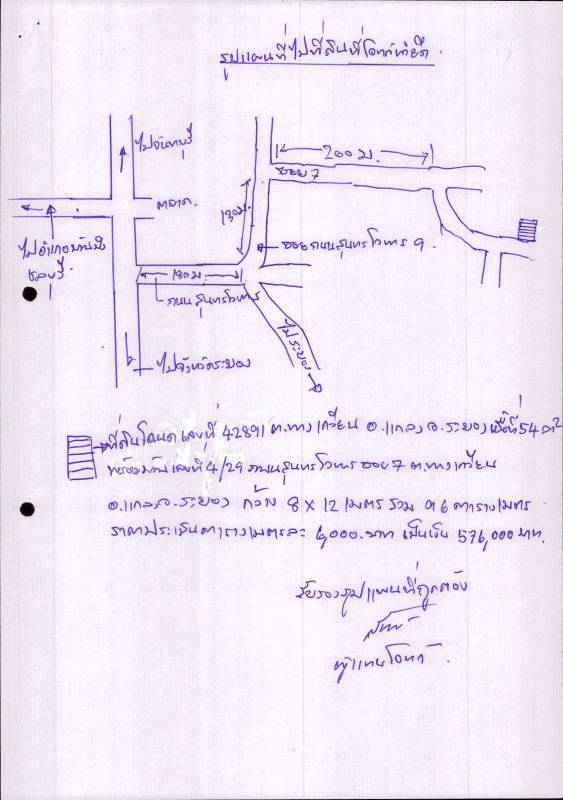 รูปแผนที่ไปที่ดินที่โจทก์นำยึด
ไปจันทบุรี
200 ม.
ซอย 7
ตลาด
130 ม.
ไปอำเภอบ้านบึง
ชลบุรี
ซอยถนนสุนทรโวหาร 9
180 ม.
ถนนสุนทรโวหาร
ไประยอง
ไปจังหวัดระยอง
ที่ดินโฉนดเลขที่ 42891 ต.ทางเกวียน อ.แกลง จ.ระยอง เนื้อที่ 54 วา²
พร้อมบ้านเลขที่ 4/29 ถนนสุนทรโวหาร ซอย 7 ต.ทางเกวียน
อ.แกลง จ.ระยอง กว้าง 8 x 12 เมตร รวม 96 ตารางเมตร
ราคาประเมินตารางเมตรละ 6,000.-บาท เป็นเงิน 576,000 บาท.
รับรองรูปแผนที่ถูกต้อง
ผู้แทนโจทก์